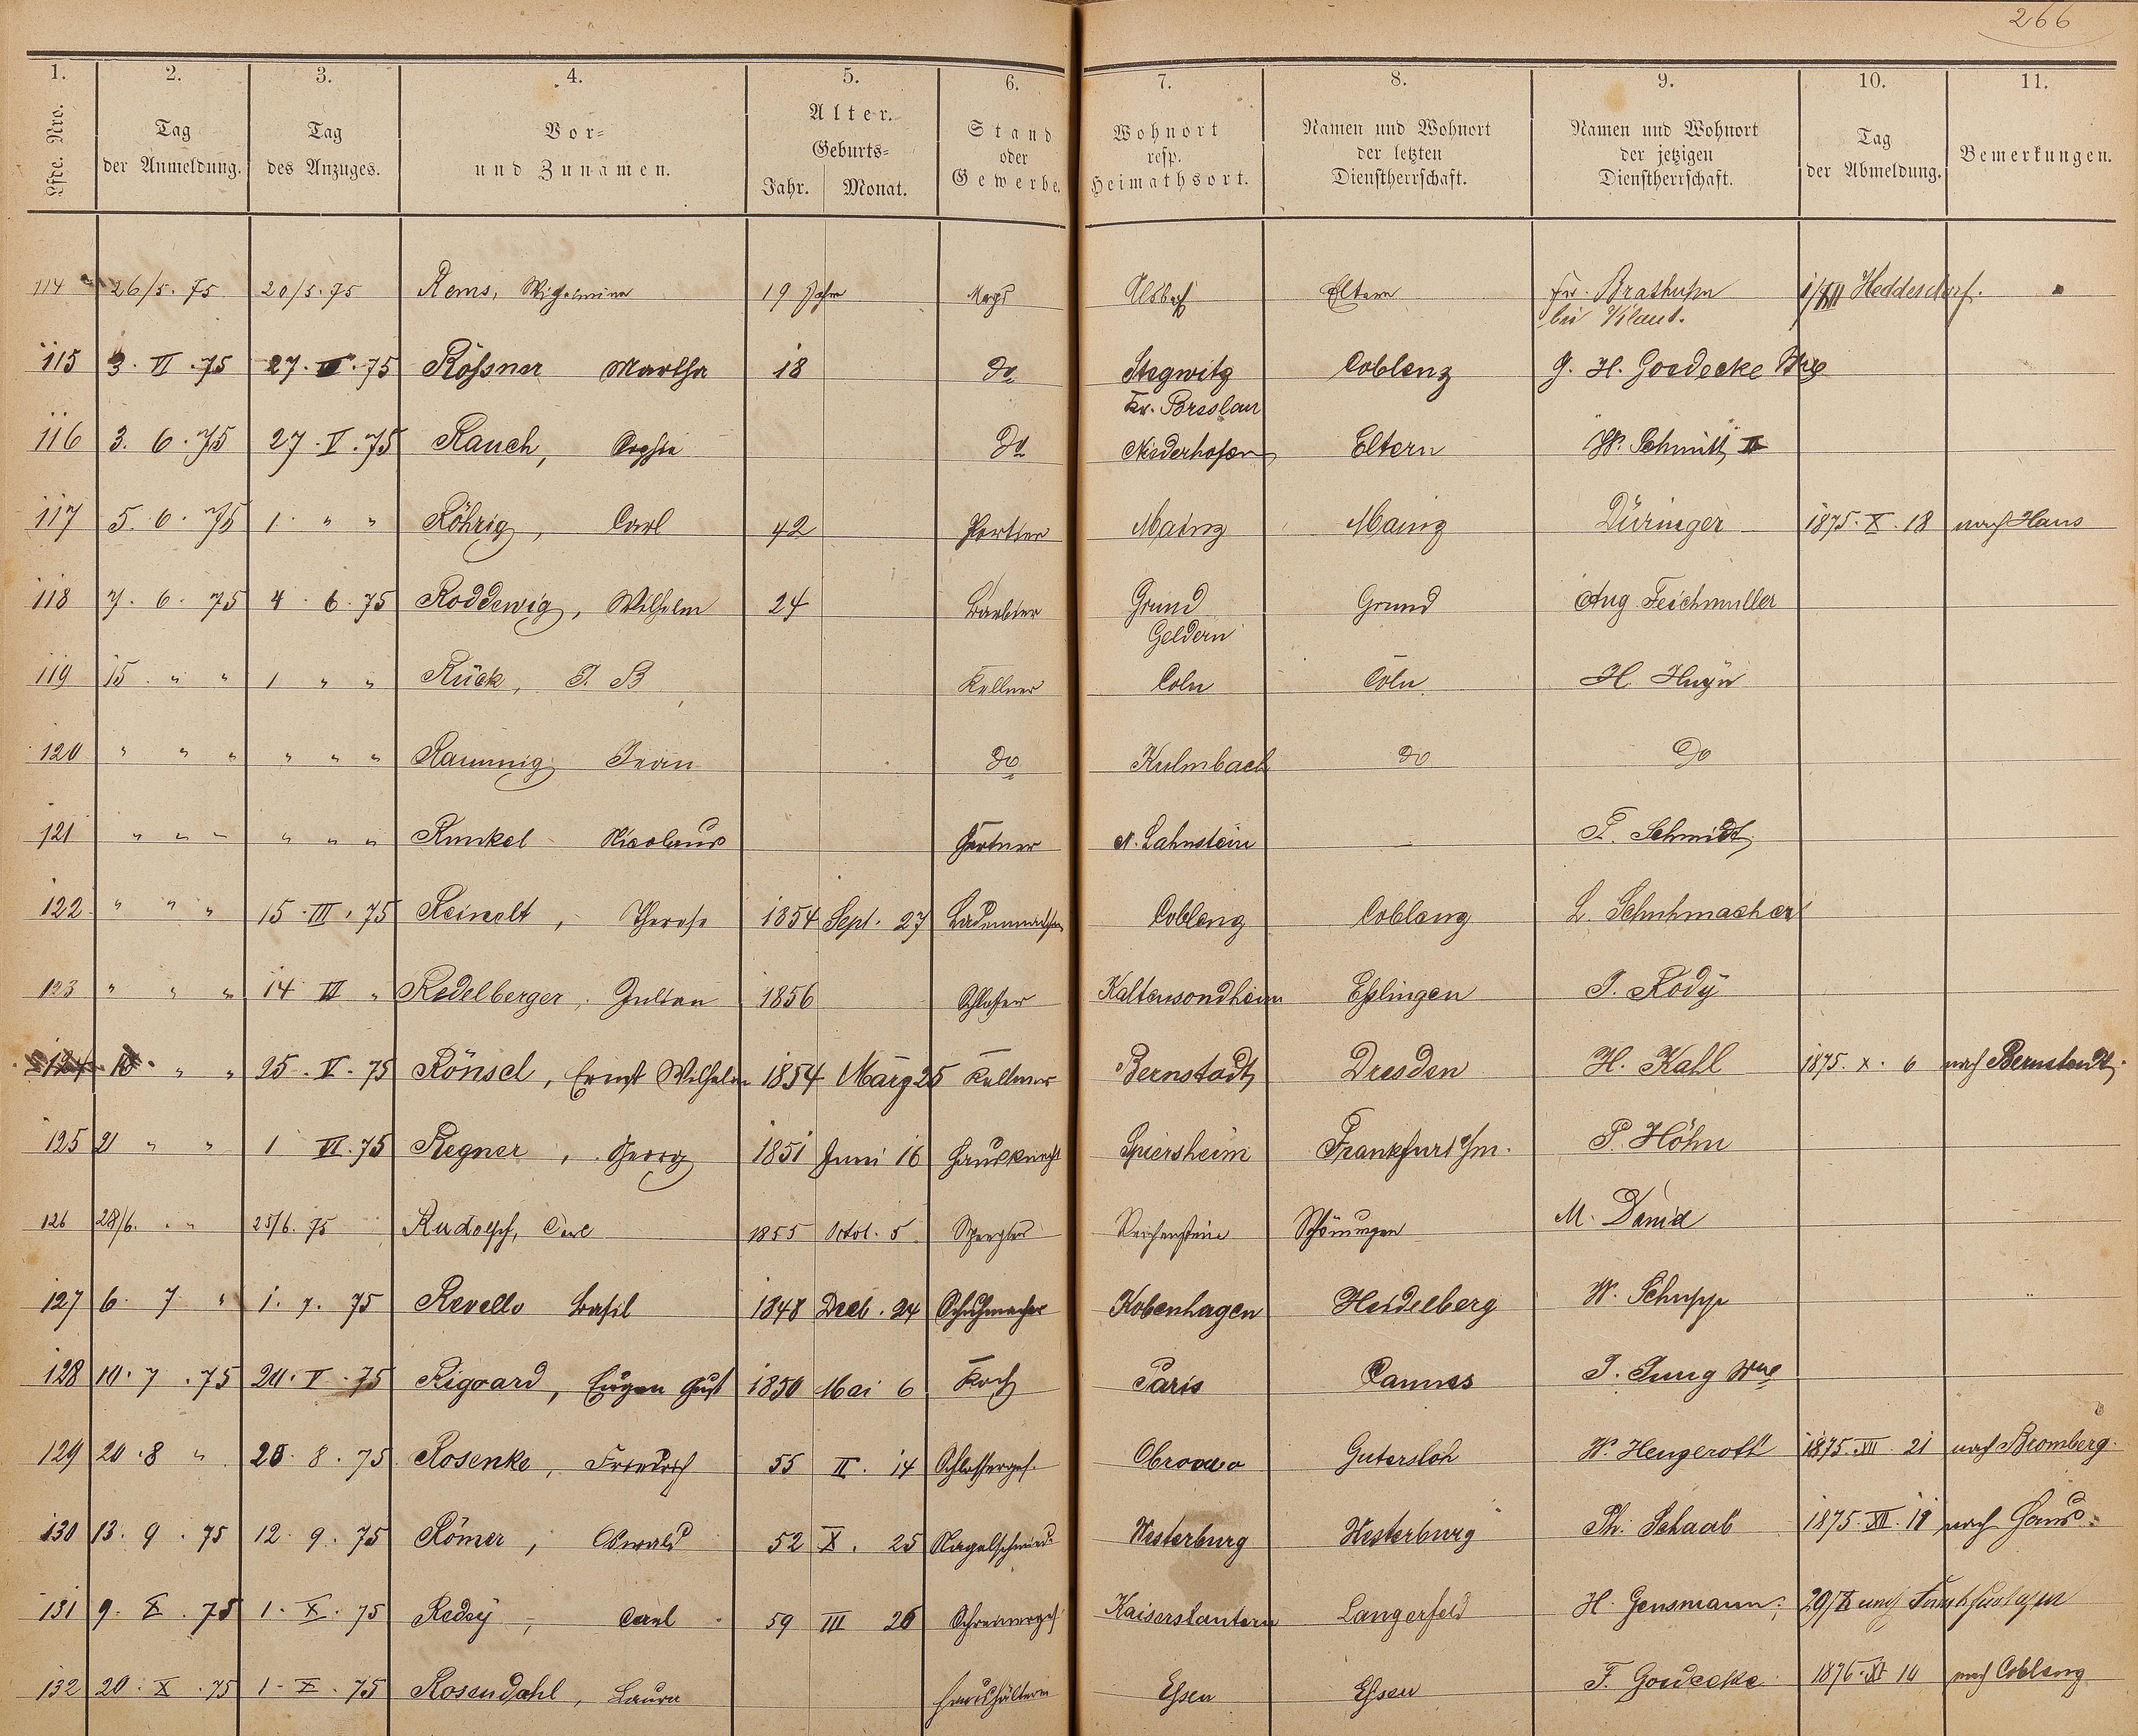 266
1. 2. 3. 4. 5. 6. 7. 8. 9. 10. 11.
Lfde. Nro.
Tag der Anmeldung.
Tag des Anzuges.
Vor- und Zunamen.
Alter. Geburts- Jahr. Monat.
Stand oder Gewerbe.
Wohnort resp. Heimathsort.
Namen und Wohnort der letzten Dienstherrschaft.
Namen und Wohnort der jetzigen Dienstherrschaft.
Tag der Abmeldung.
Bemerkungen.
114 26/5. 75 20/5. 75 Rems, Wilhelmine 19 Jahr Magd Eltern Fr. Heddesdorf.
bei
115 3. VI. 75 27. 75 Rössner Martha 18 do Stegwitz Coblenz G. H. Goedecke Wwe
Kr. Breslau
116 3. 6. 75 27. V. 75 Rauch, Sophie do Niederhofen Eltern W. Schmitt II
117 5. 6. 75 1. " " Röhrig, Carl 42 Portier Mainz Mainz Düringer 1875. X. 18 nach Haus
118 7. 6. 75 4. 6. 75 Roddewig, Wilhelm 24 Barbier Grund Grund Aug. Teichmuller
Geldern
119 15. " " 1 " " Rück, J. B Kellner Coln Cöln H. Huyn
120 " " " " " " Jean do Kulmbach do do
121 " " " " " " Runkel Nicolaus Gärtner N. Lahnstein — F. Schmidt
122 " " " 15. III. 75 Reinelt, Therese 1854 Sept. 27 Coblenz Coblenz L. Schuhmacher
123 " " " 14 VI " Redelberger, Julian 1856 Schlosser Kaltensondheim Esslingen J. Rody
124 " " 25. V. 75 Rönsch, Ernst Wilhelm 1854 März 25 Kellner Bernstadt Dresden H. Kall 1875. X. 6 nach Bernstadt.
125 21 " " 1 VI. 75 Regner, Georg 1851 Juni 16 Hausknecht Spiersheim Frankfurt a/m. P. Höhn
126 28/6. " " 25/6. 75 Rudolph, Carl 1855 Octob. 5 Spengler Reichenstein Schöningen M. David
127 6. 7 " 1. 7. 75 Revello Basil 1848 Deeb. 24 Schuhmacher Kobenhagen Heidelberg W. Schupp
128 10. 7. 75 20. V. 75 Rigoard, Eugen Gust 1850 Mai 6 Koch Paris Cannes J. Jung Wwe
129 20. 8 " 20. 8. 75 Rosenke, Friedrich 55 II. 14 Schlosserges. Obrowo Gutersloh W. Hengeroth 1875. XII. 21 nach Bromberg.
130 13. 9. 75 12. 9. 75 Römer, Oswald 52 X. 25 Nagelschmied Westerburg Westerburg Ph. Schaab 1875. XII. 19 nach Haus.
131 9. X. 75 1. X. 75 Redey, Carl 59 III 26 Schreinerges. Kaiserslautern Langerfeld H. Gensmann. 29/X nach Frankfurt a/m
132 20. X. 75 1. X. 75 Rosendahl, Laura Haushälterin Essen Essen F. Goedecke 1876. XI 10 nach Coblenz